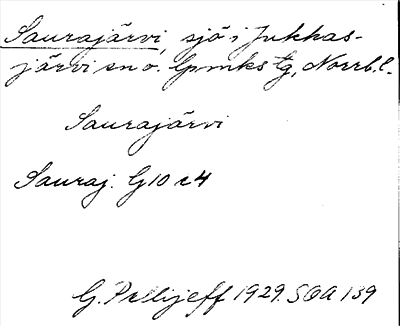 Saurajärvi, sjö i Jukkas-
järvi sn o. Gpmks tg, Norrb. l.
Saurajärvi
Sauraj. G10 c4
G. Pellijeff 1929. SOA 139